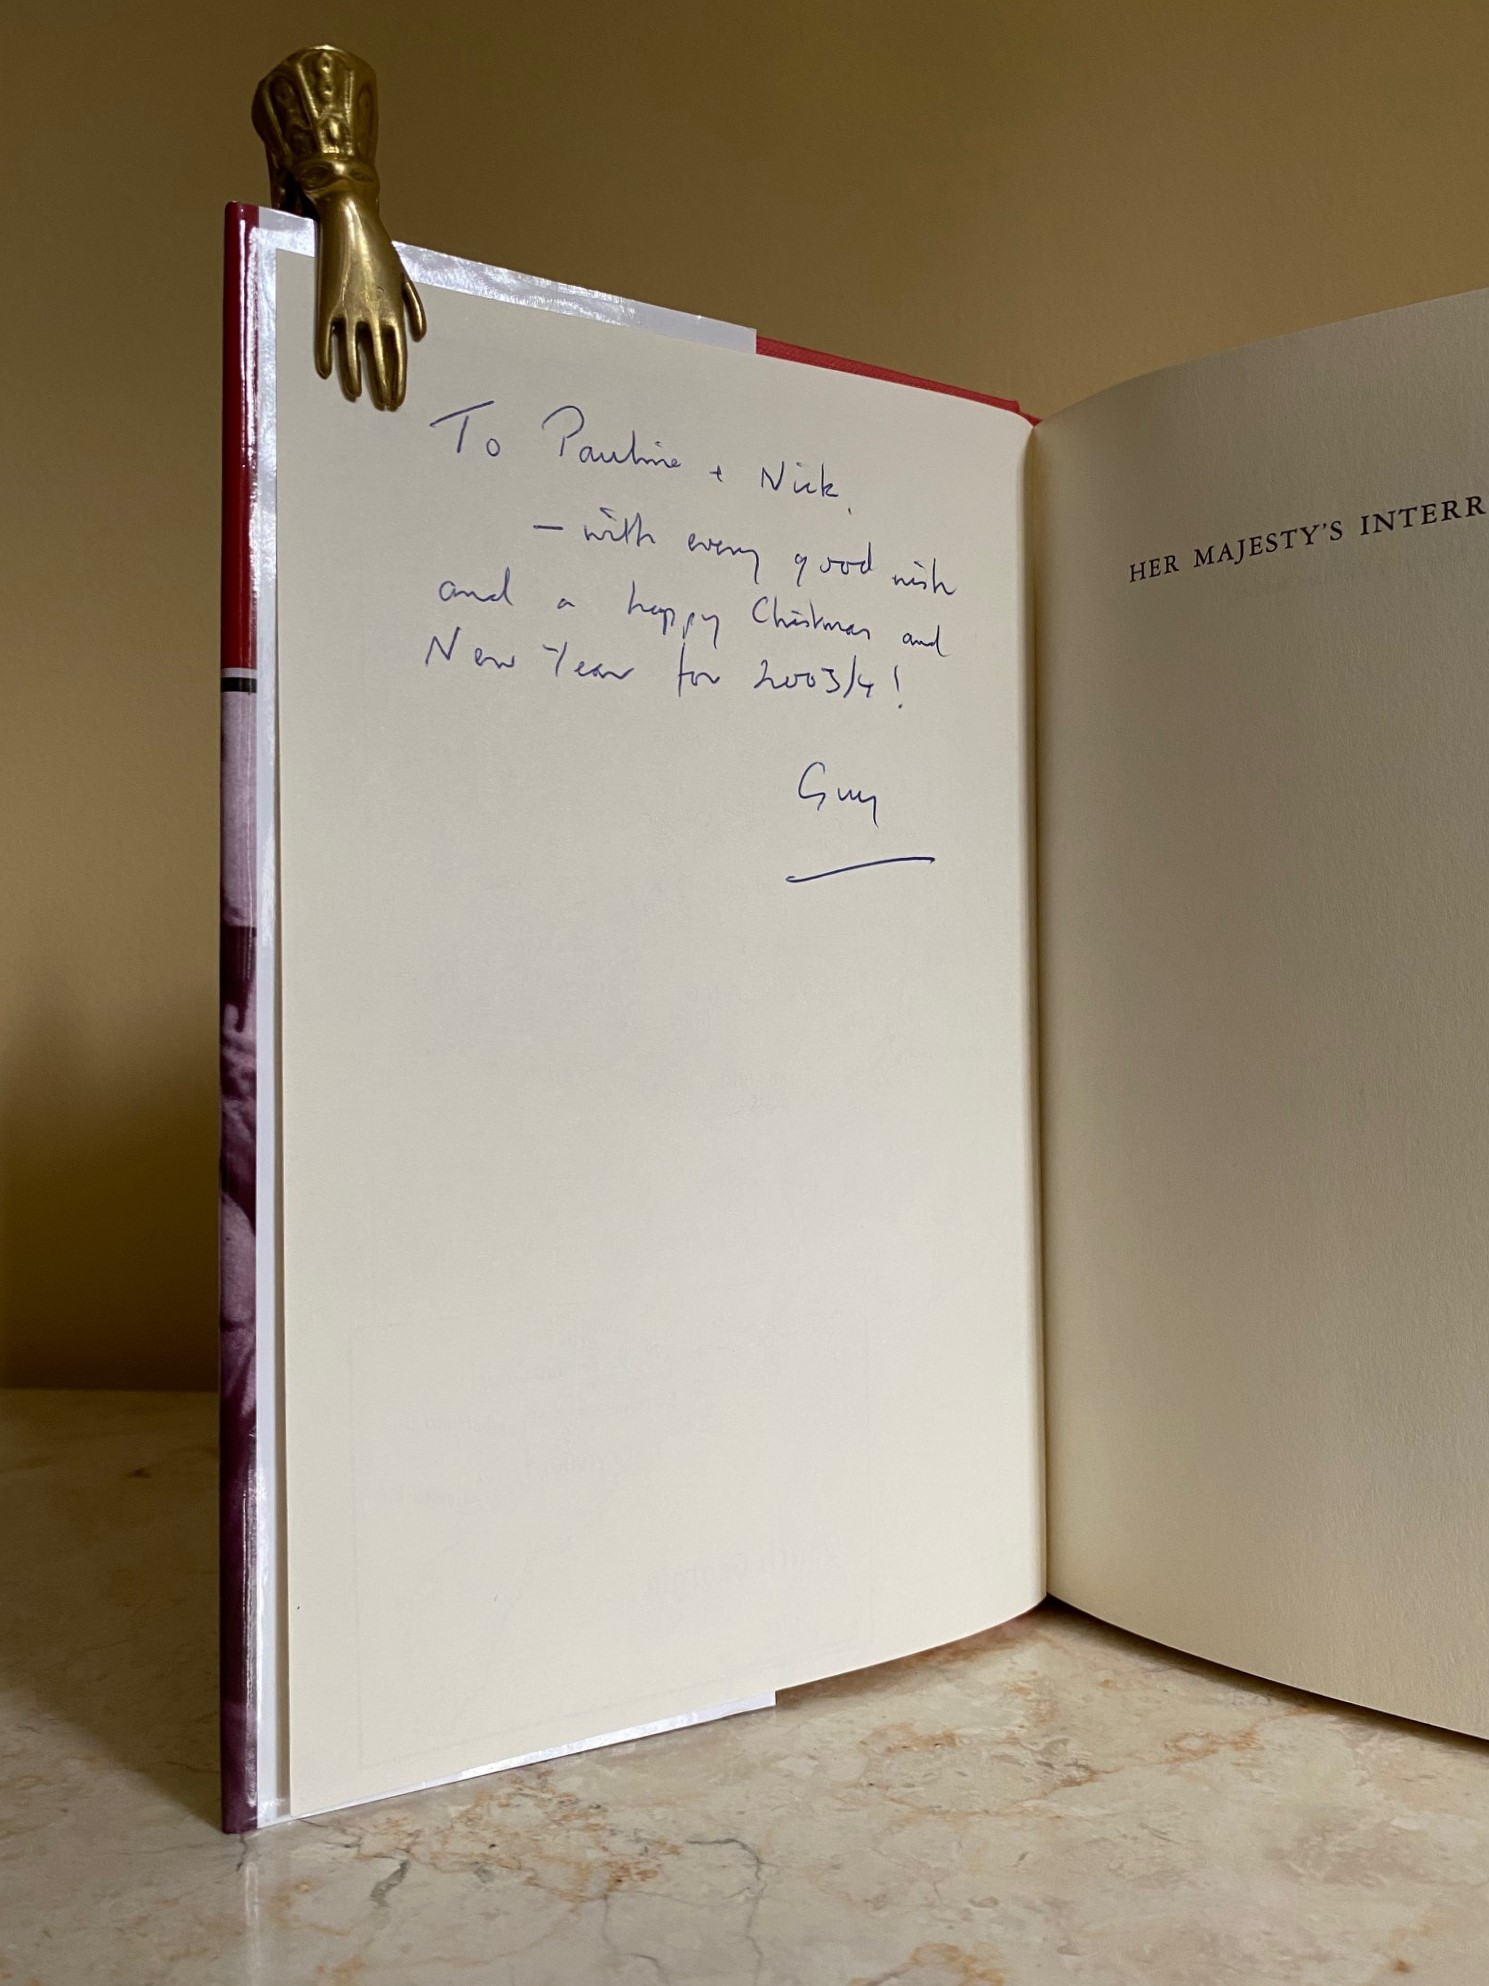 To Pauline + Nick,
– with every good wish
and a happy Christmas and
New Year for 2003/4!
Guy
HER MAJESTY'S INTERR